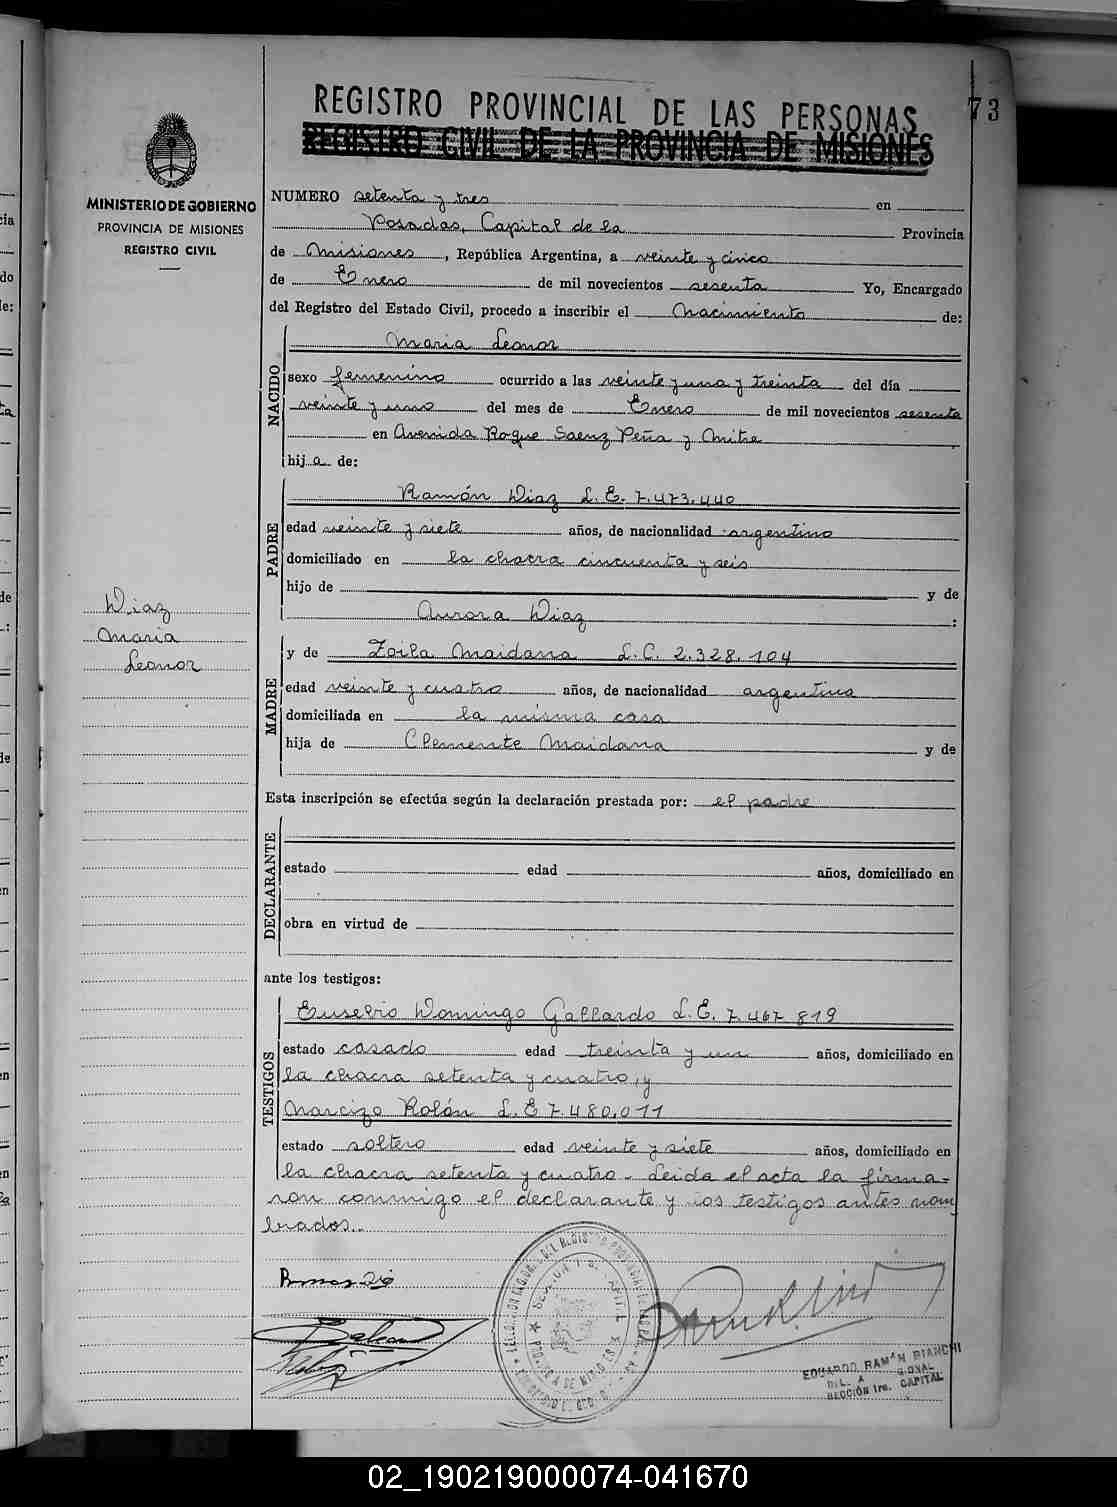 REGISTRO PROVINCIAL DE LAS PERSONAS
REGISTRO CIVIL DE LA PROVINCIA DE MISIONES
73
MINISTERIO DE GOBIERNO
PROVINCIA DE MISIONES
REGISTRO CIVIL
NUMERO setenta y tres en
Posadas, Capital de la Provincia
de Misiones, República Argentina, a veinte y cinco
de Enero de mil novecientos sesenta Yo, Encargado
del Registro del Estado Civil, procedo a inscribir el Nacimiento de:
NACIDO
Maria Leonor
sexo femenino ocurrido a las veinte y una y treinta del día
veinte y uno del mes de Enero de mil novecientos sesenta
en Avenida Roque Saenz Peña y Mitre
hija de:
PADRE
Ramón Diaz L.E. 7.473.440
edad veinte y siete años, de nacionalidad argentino
domiciliado en la chacra cincuenta y seis
hijo de y de
Aurora Diaz :
Diaz
Maria
Leonor
MADRE
y de Zoila Maidana L.C. 2.328.104
edad veinte y cuatro años, de nacionalidad argentina
domiciliada en la misma casa
hija de Clemente Maidana y de
Esta inscripción se efectúa según la declaración prestada por: el padre
DECLARANTE
estado edad años, domiciliado en
obra en virtud de
ante los testigos:
TESTIGOS
Eusebio Domingo Gallardo L.E. 7.467.819
estado casado edad treinta y un años, domiciliado en
la chacra setenta y cuatro, y
Narcizo Rolón L.E 7.480.011
estado soltero edad veinte y siete años, domiciliado en
la chacra setenta y cuatro - Leida el acta la firma-
ron conmigo el declarante y los testigos antes nom
brados.
EDUARDO RAMÓN BIANCHI
SECCIÓN 1ra. CAPITAL
02_190219000074-041670